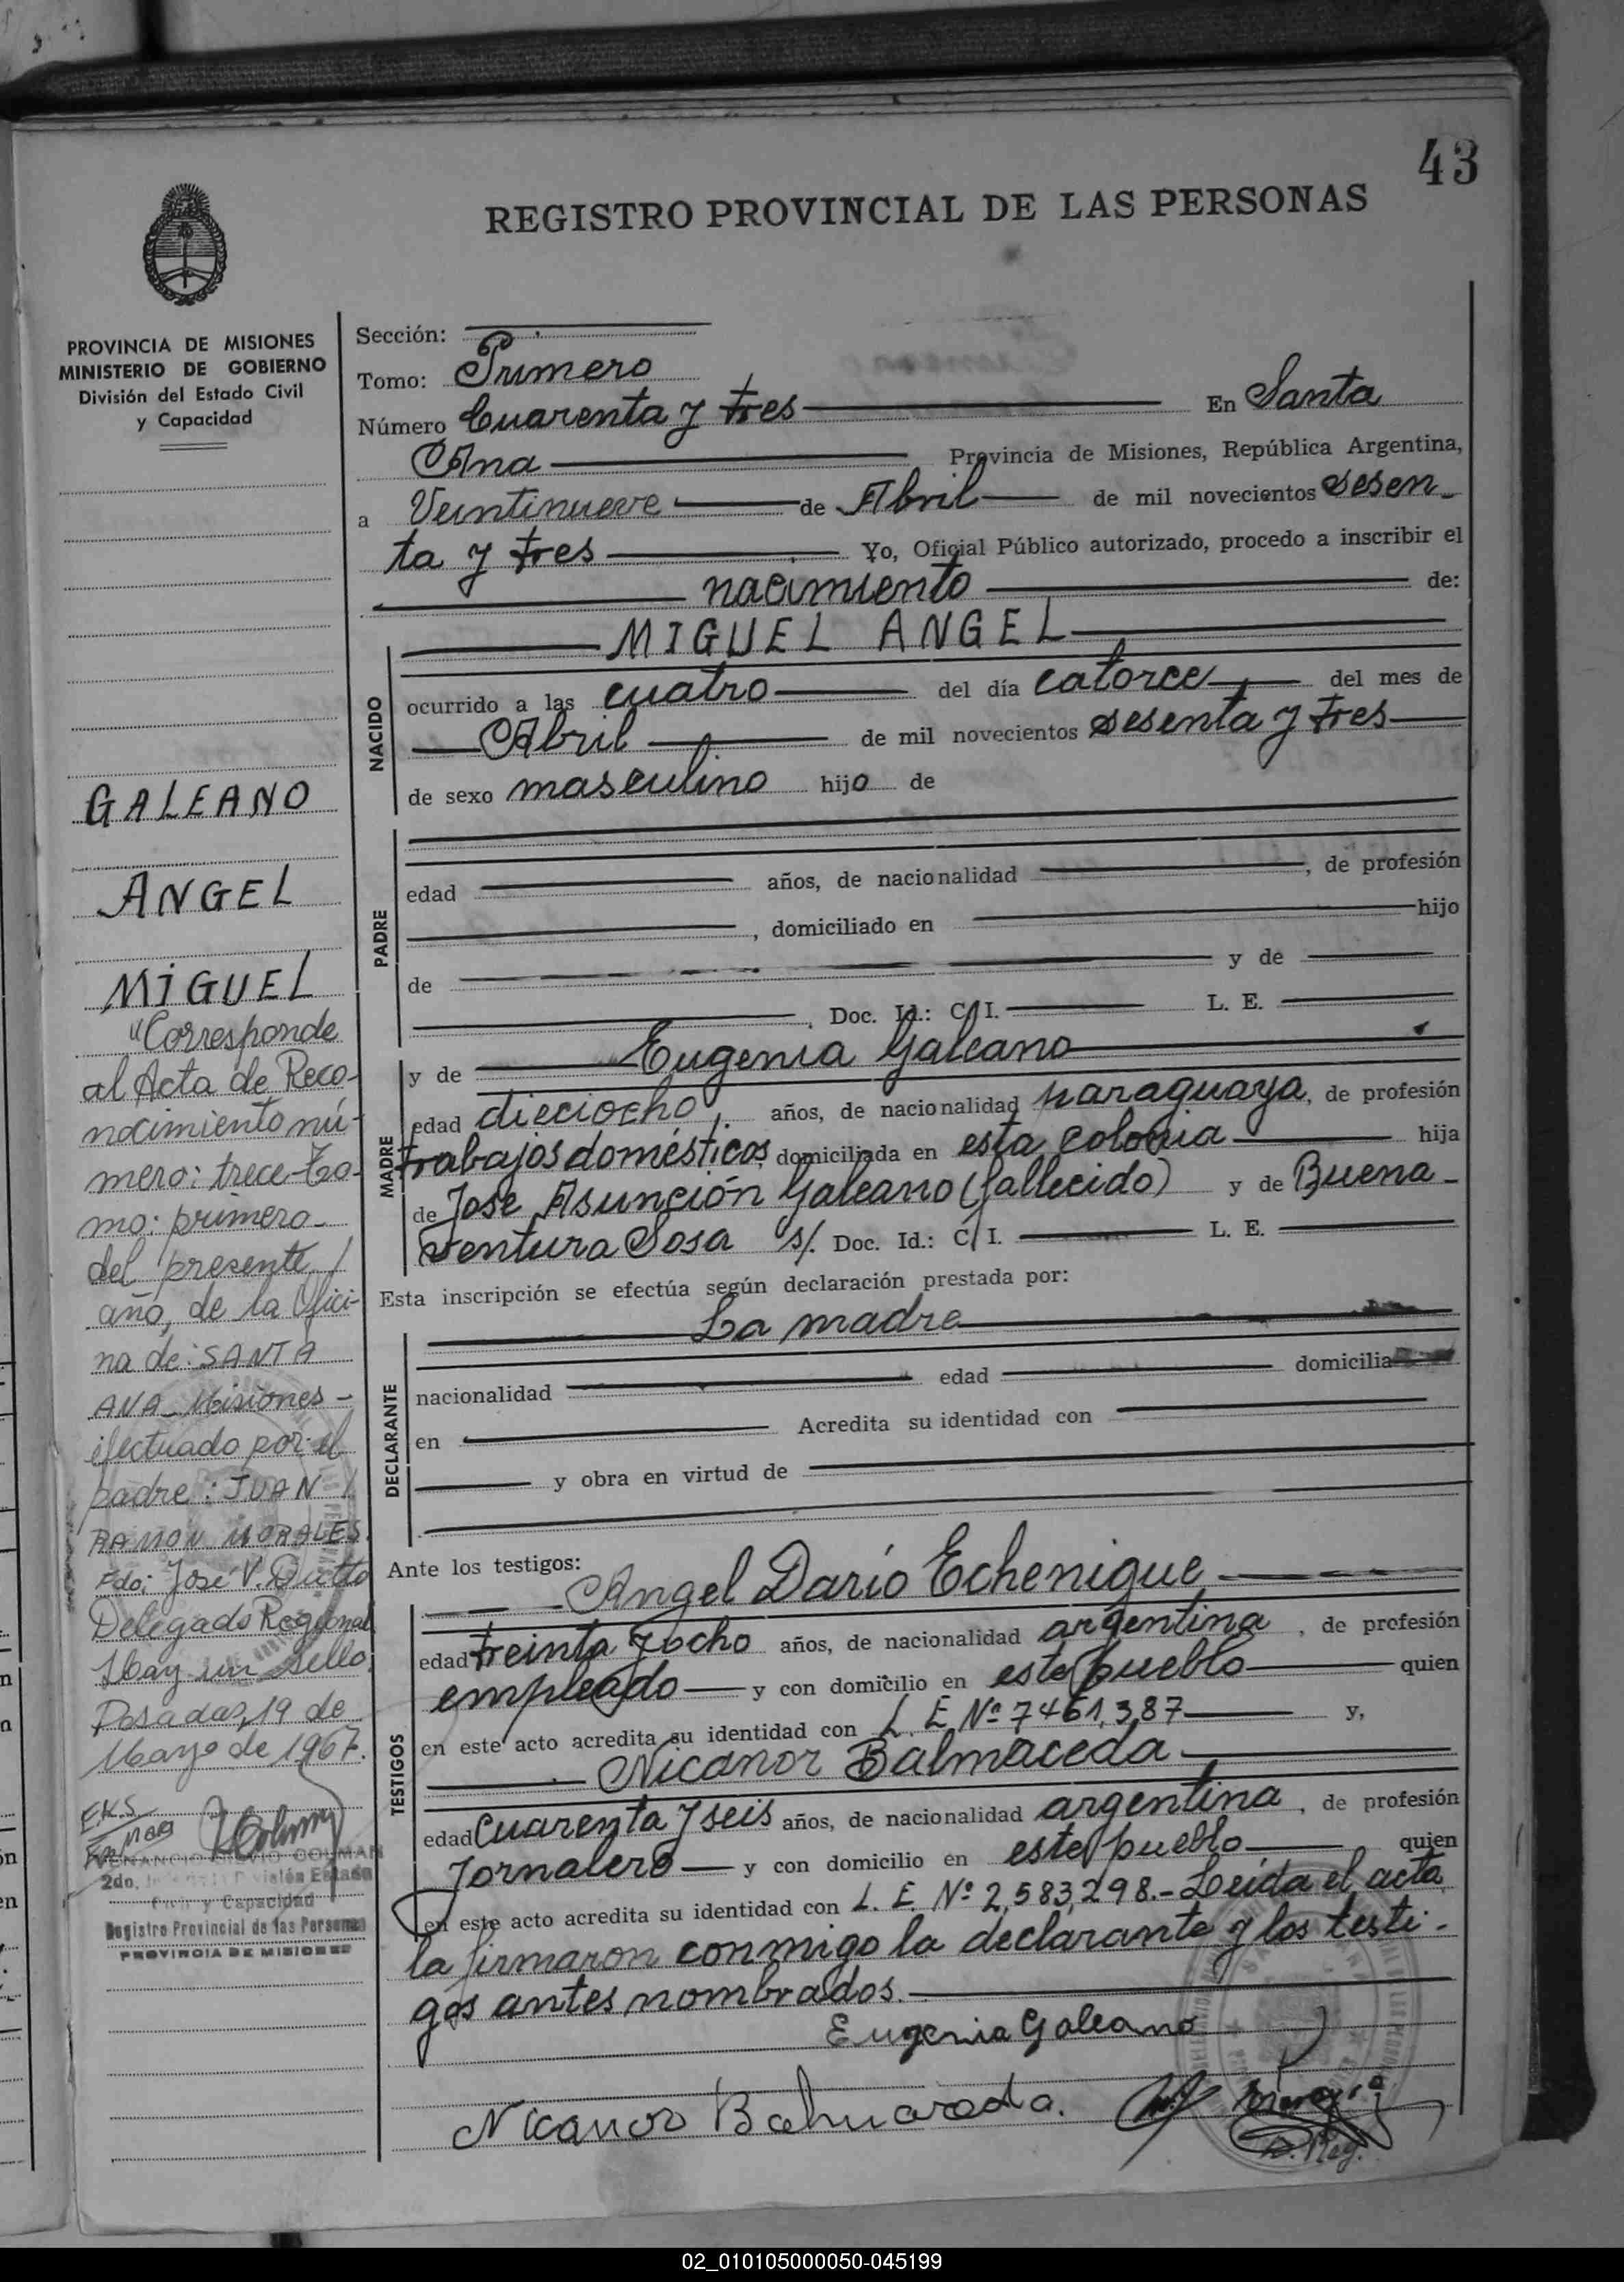 43
REGISTRO PROVINCIAL DE LAS PERSONAS
PROVINCIA DE MISIONES
MINISTERIO DE GOBIERNO
División del Estado Civil
y Capacidad
GALEANO
ANGEL
MIGUEL
"Corresponde
al Acta de Reco-
nocimiento nú-
mero: trece-To-
mo: primero-
del presente
año, de la Ofici-
na de: SANTA
ANA-Misiones-
efectuado por el
padre: JUAN
RAMON MORALES.
Fdo: José V.
Delegado Regional
Hay un sello.
Posadas, 19 de
Mayo de 1967.
2do. División Estado
Civil y Capacidad
Registro Provincial de las Personas
PROVINCIA DE MISIONES
Sección:
Tomo: Primero
Número Cuarenta y tres En Santa
Ana Provincia de Misiones, República Argentina,
a Veintinueve de Abril de mil novecientos sesen-
ta y tres Yo, Oficial Público autorizado, procedo a inscribir el
nacimiento de:
NACIDO
MIGUEL ANGEL
ocurrido a las cuatro del día catorce del mes de
Abril de mil novecientos sesenta y tres
de sexo masculino hijo de
PADRE
edad años, de nacionalidad , de profesión
, domiciliado en hijo
de y de
, Doc. Id.: C. I. L. E.
MADRE
y de Eugenia Galeano
edad dieciocho, años, de nacionalidad paraguaya, de profesión
trabajos domésticos domiciliada en esta colonia hija
de José Asunción Galeano (fallecido) y de Buena-
ventura Sosa s/. Doc. Id.: C. I. L. E.
Esta inscripción se efectúa según declaración prestada por:
DECLARANTE
La madre
nacionalidad edad domicilia
en Acredita su identidad con
y obra en virtud de
Ante los testigos:
TESTIGOS
Angel Darío Echenique
edad treinta y ocho años, de nacionalidad argentina, de profesión
empleado y con domicilio en este pueblo quien
en este acto acredita su identidad con L. E. Nº 7461,387 y,
Nicanor Balmaceda
edad Cuarenta y seis años, de nacionalidad argentina, de profesión
Jornalero y con domicilio en este pueblo quien
en este acto acredita su identidad con L. E. Nº 2,583,298.- Leída el acta
la firmaron conmigo la declarante y los testi-
gos antes nombrados.
Eugenia Galeano
Nicanor
02_010105000050-045199